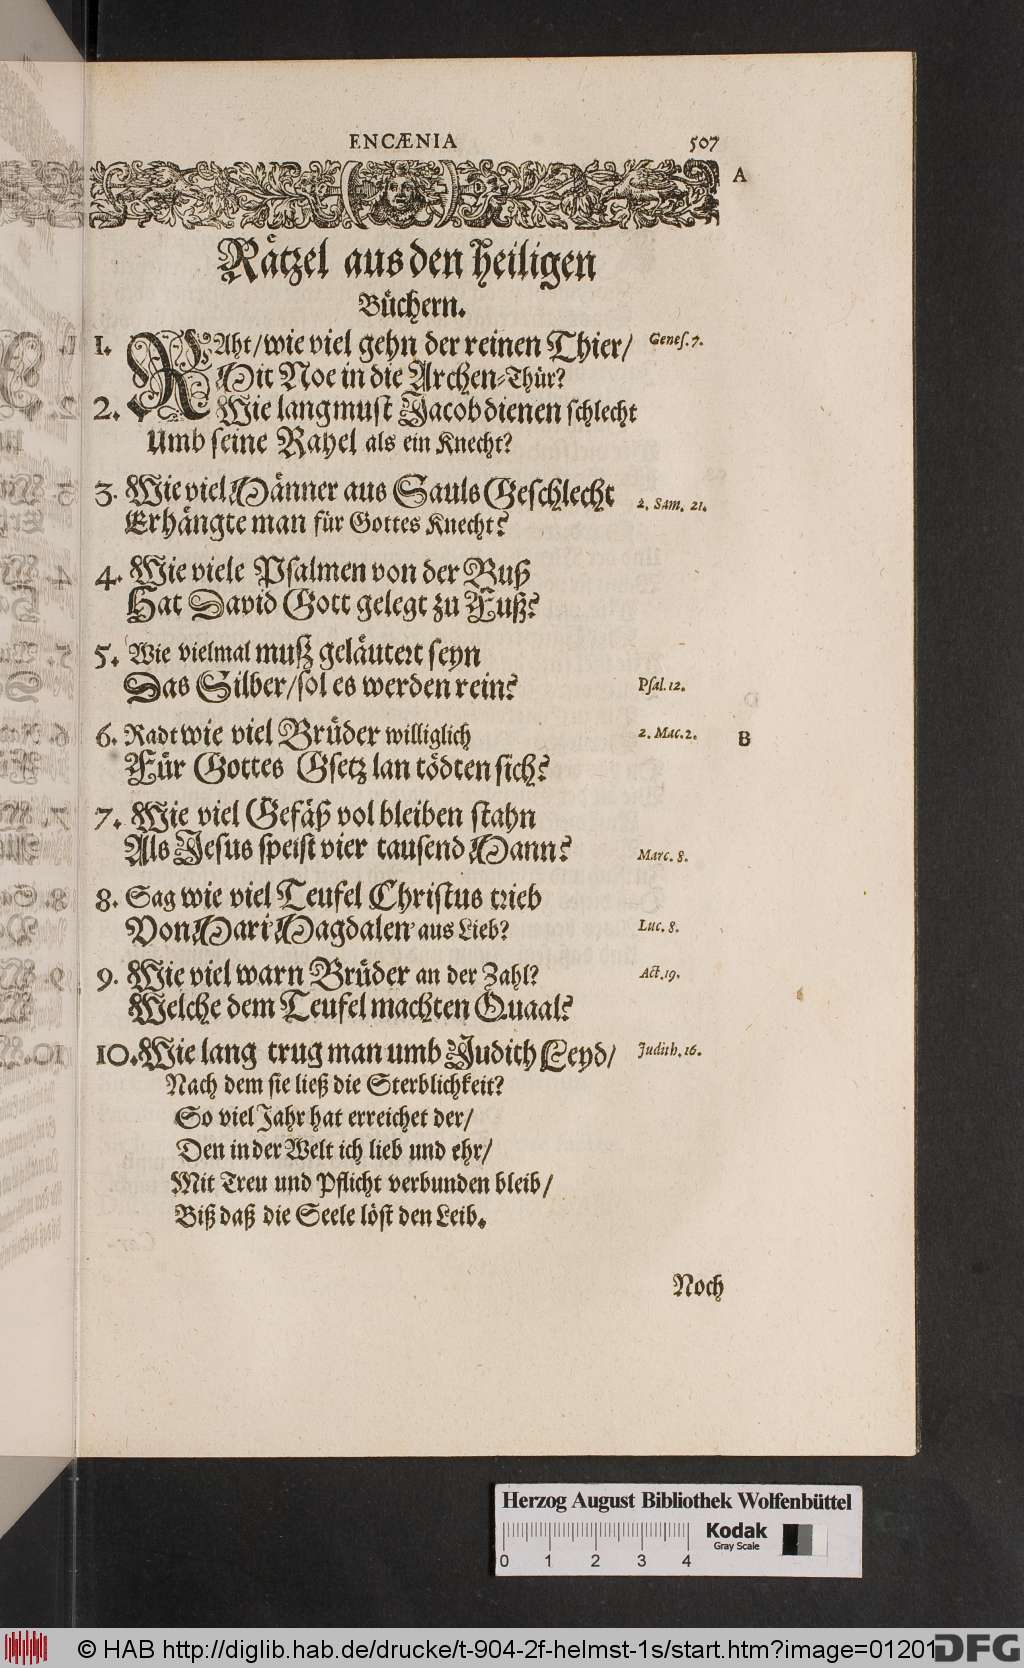 ENCÆNIA 507
A
Rätzel aus den heiligen
Büchern.
1. RAht/ wie viel gehn der reinen Thier/ Genes. 7.
Mit Noe in die Archen-Thür?
2. Wie lang must Jacob dienen schlecht
Umb seine Rahel als ein Knecht?
3. Wie viel Männer aus Sauls Geschlecht
2. Sam. 21.
Erhängte man für Gottes Knecht?
4. Wie viele Psalmen von der Buß
Hat David Gott gelegt zu Fuß?
5. Wie vielmal muß geläutert seyn
Das Silber/ sol es werden rein? Psal. 12.
6. Radt wie viel Brüder williglich 2. Mac. 2. B
Für Gottes Gsetz lan tödten sich?
7. Wie viel Gefäß vol bleiben stahn
Als Jesus speist vier tausend Mann? Marc. 8.
8. Sag wie viel Teufel Christus trieb
Von Mari Magdalen aus Lieb? Luc. 8.
9. Wie viel warn Brüder an der Zahl? Act. 19.
Welche dem Teufel machten Quaal?
10. Wie lang trug man umb Judith Leyd/ Judith. 16.
Nach dem sie ließ die Sterblichkeit?
So viel Jahr hat erreichet der/
Den in der Welt ich lieb und ehr/
Mit Treu und Pflicht verbunden bleib/
Biß daß die Seele löst den Leib.
Noch
Herzog August Bibliothek Wolfenbüttel
Kodak
Gray Scale
0 1 2 3 4
© HAB http://diglib.hab.de/drucke/t-904-2f-helmst-1s/start.htm?image=01201
DFG